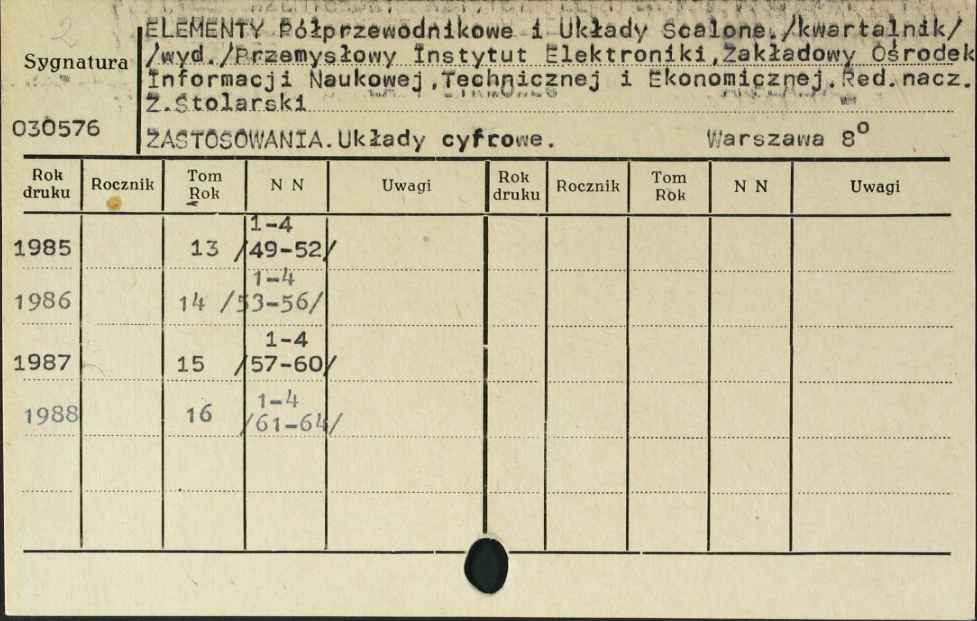 2
ELEMENTY Półprzewodnikowe i Układy Scalone./kwartalnik/
/wyd./Przemysłowy Instytut Elektroniki,Zakładowy Ośrodek
Sygnatura
Informacji Naukowej,Technicznej i Ekonomicznej.Red.nacz.
Z.Stolarski
030576
ZASTOSOWANIA.Układy cyfrowe. Warszawa 8°
Rok druku Rocznik Tom Rok N N Uwagi Rok druku Rocznik Tom Rok N N Uwagi
1-4
1985 13 /49-52/
1-4
1986 14 /53-56/
1-4
1987 15 /57-60/
1-4
1988 16 /61-64/